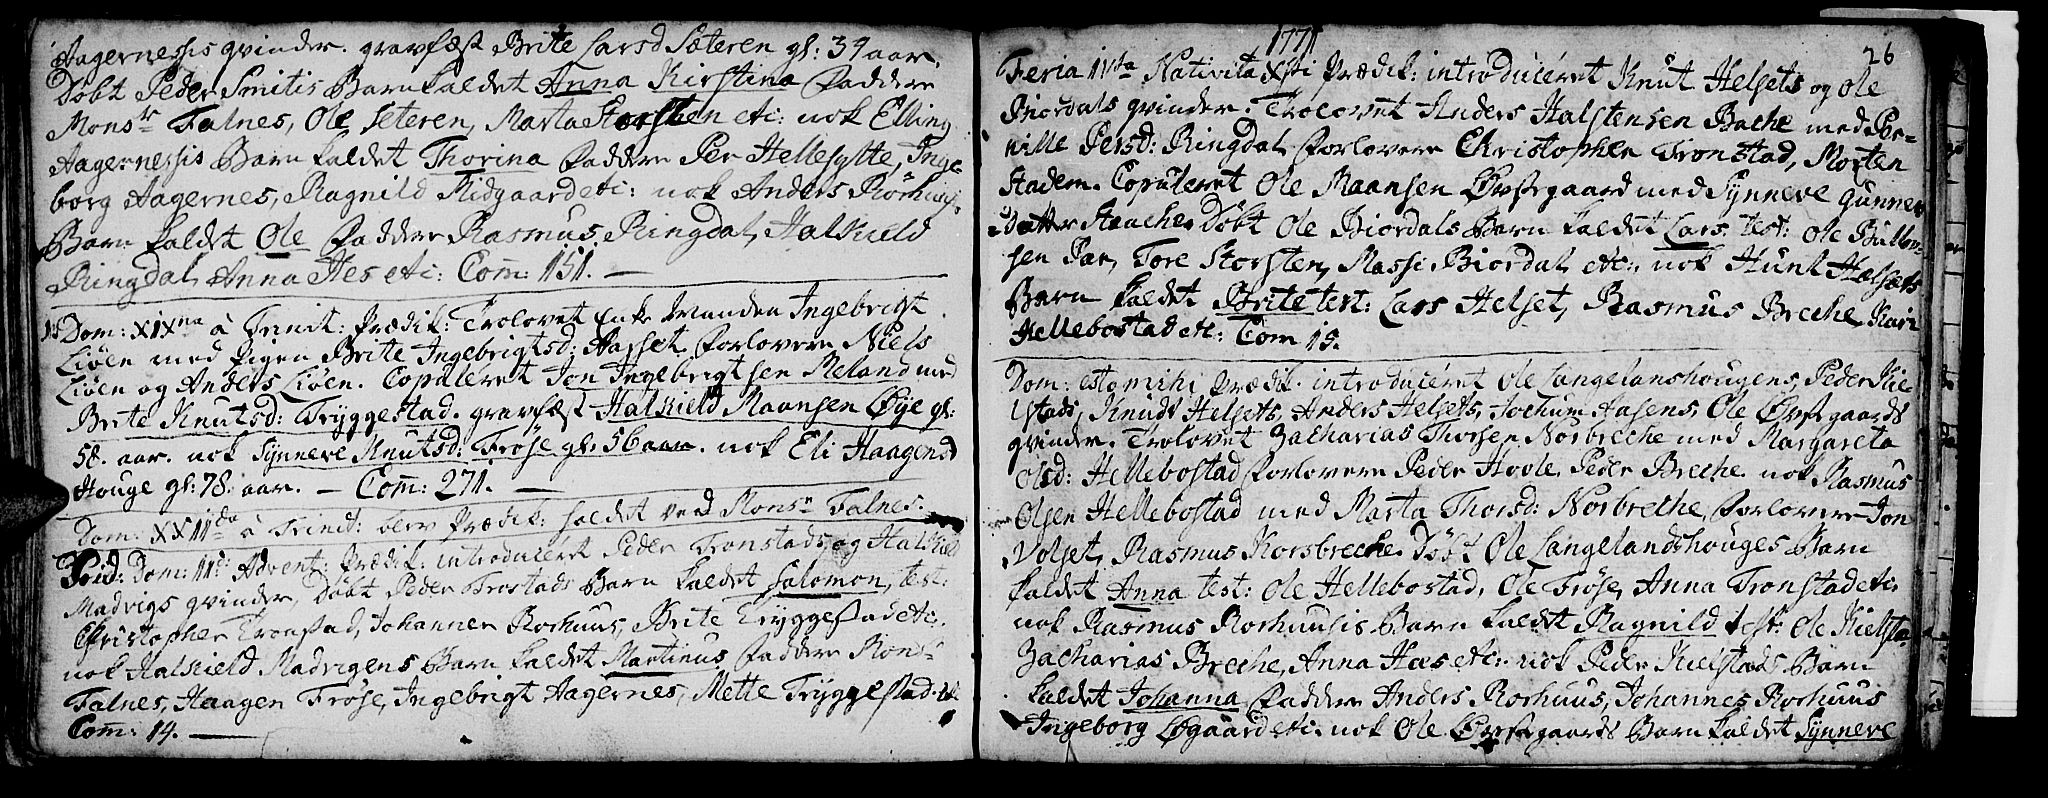 Aagernessis qvinder. gravfæst Brite Larsd Sæteren gl: 39 aar.
Döbt Peder Smitis Barn kaldet Anna Kirstina Faddere
Monsr Falnes, Ole Seteren, Marta Storsten etc: nok Elling
Aagernessis Barn kaldet Thorina Faddere Per Hellesylte, Inge-
borg Aagernes, Ragnild Kidgaard etc: nok Anders
Barn kaldet Ole Faddere Rasmus Ringdal, Halkield
Ringdal, Anna Hes etc: Com: 151. —
Dom: XIXna à Trinit: Prædik: Trolovet Enke Manden Ingebrigt
Liöen med Pigen Brite Ingebrigtsd: Aasset Forlovere Niels
Liöen og Anders Liöen. Copuleret Jon Ingebrigtsen Meland med
Brite Knutsd: Tryggestad. gravfæst Halkield Maansen Öye gl:
58. aar. nok Synneve Knutsd: Fröse gl: 56 aar. nok Eli Haagensd
Houge gl: 78. aar. — Com: 271. —
Dom: XXIIda à Trinit: blev Prædik: holdet ved Monsr Falnes.
Dom: II Advent: Prædik: introduceret Peder Tronstads og Halkield
Madvigs qvinder, Döbt Peder Trostads Barn kaldet Salomon, test:
Christopher Tronstad, Johanner Rorhuus, Brite Tryggestad etc.
nok Halkield Madvigens Barn kaldet Martinus Faddere Monsr
Falnes, Haagen Fröse, Ingebrigt Aagernes, Mette Tryggestad
Com: 14. —
1771
26
Feria IVta Nativita Xsti Prædik: introduceret Knut Helsets og Ole
Biordals qvinder. Trolovet Anders Halstensen Bache med Per-
nille Persd: Ringdal Forlovere Christopher Tronstad, Morten
Stadem. Copuleret Ole Maansen Övstegaard med Synneve Gunner
Datter Staache. Döbt Ole Biordals Barn kaldet Lars test: Ole
sen Par, Tore Storsten, Massi Biordal etc: nok Hunt Halsets
Barn kaldet Brite test: Lars Helset, Rasmus Breche Kari
Hellebostad etc: Com 19.
Dom: estomihi Prædik. introduceret Ole Langelanshougens, Peder Kie-
lstads, Knudt Helsets, Anders Helsets, Jochum Aasens, Ole Övstegaards
qvinder. Trolovet Zacharias Thorsen Norbreche med Margareta
Olsd: Hellebostad Forlovere Peder Hovle Peder Breche nok Rasmus
Olsen Hellebostad med Marta Thorsd: Norbreche Forlovere Jon
Volset, Rasmus Korsbreche. Döbt Ole Langelandshouges Barn
kaldet Anna test: Ole Hellebostad, Ole Fröse, Anna Tronstad etc.
nok Rasmus Rorhuusis Barn kaldet Ragnild test: Ole Kielsta
Zacharias Breche, Anna Haes etc: nok Peder Kielstads Barn
kaldet Johanna Faddere Anders Rorhuus, Johannes Rorhuus
Ingeborg Øgaard etc: nok Ole Övstegaards Barn kaldet Synneve